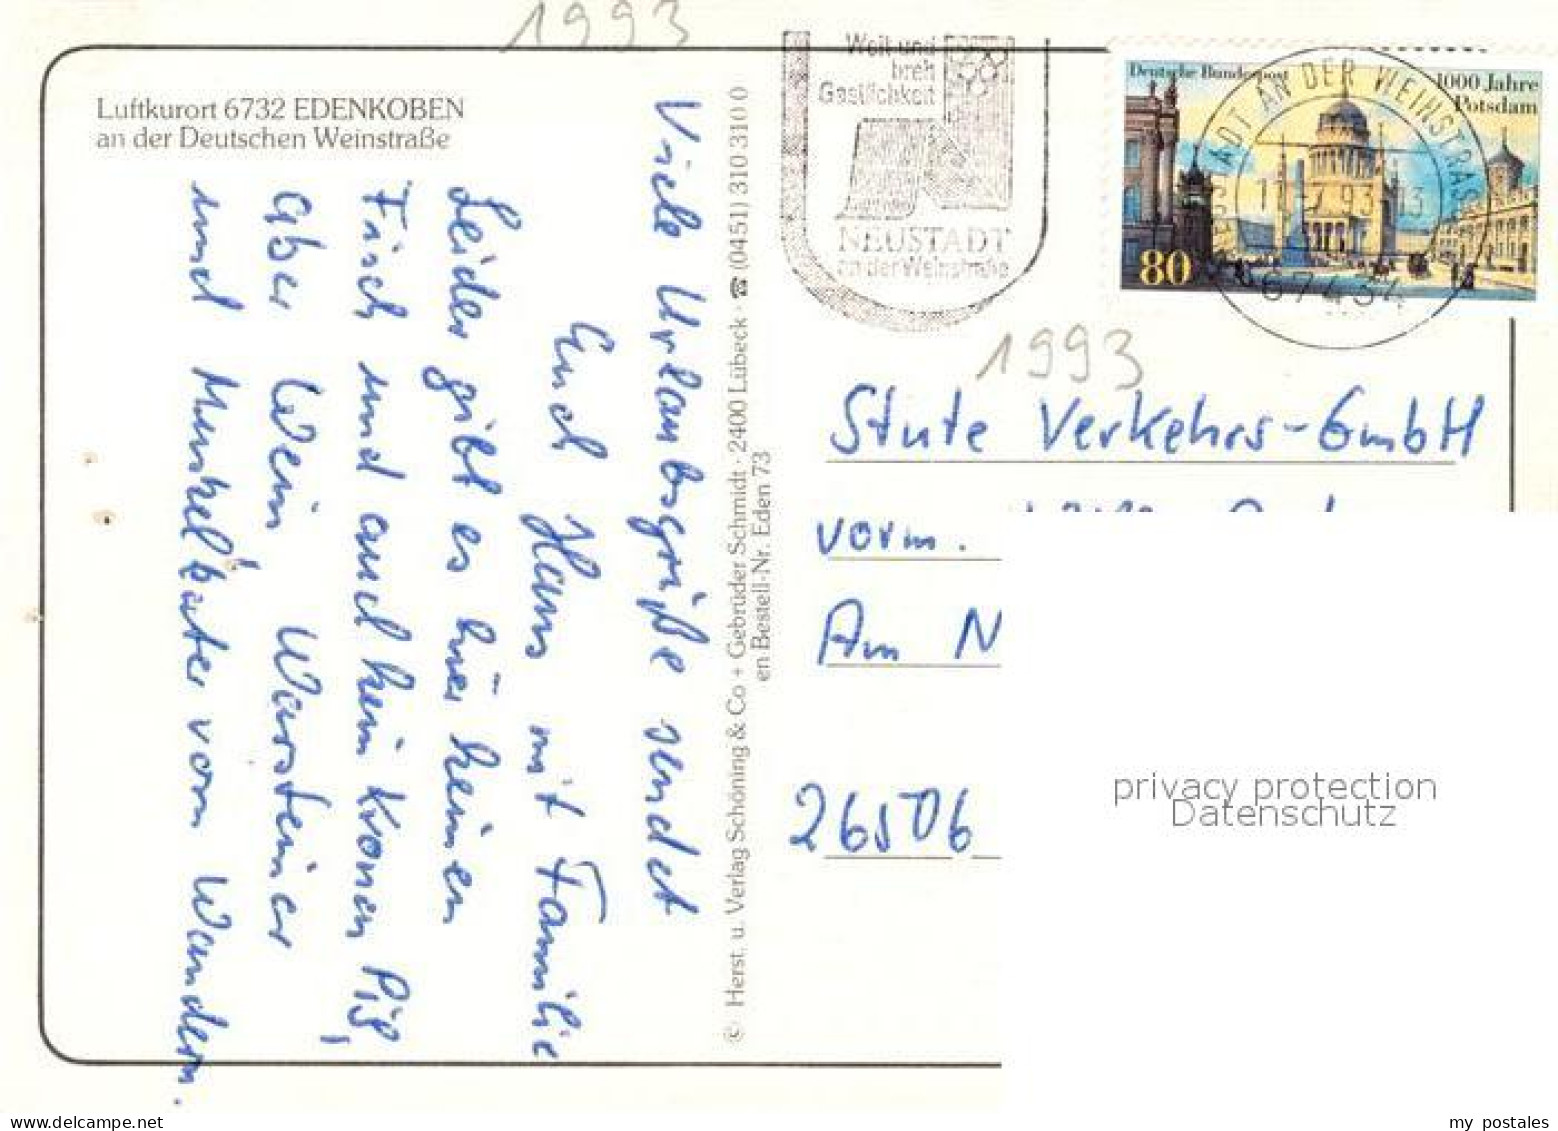 1993
Luftkurort 6732 EDENKOBEN
an der Deutschen Weinstraße
Viele Urlaubsgrüße sendet
Euch Hans mit Familie
Leider gibt es hier keinen
Fisch und auch kein Kronen Pils,
aber Wein, Warsteiner
und Muskelkater vom Wandern.
© Herst. u. Verlag Schöning & Co + Gebrüder Schmidt · 2400 Lübeck · ☎ (0451) 310 310 0
en Bestell-Nr. Eden 73
Weit und
breit
Gastlichkeit
NEUSTADT
an der Weinstraße
Deutsche Bundespost
1000 Jahre
Potsdam
80
ADT AN DER WEINSTRAS
67434
1993
Stute Verkehrs-GmbH
vorm.
Am N
26506
privacy protection
Datenschutz
my postales